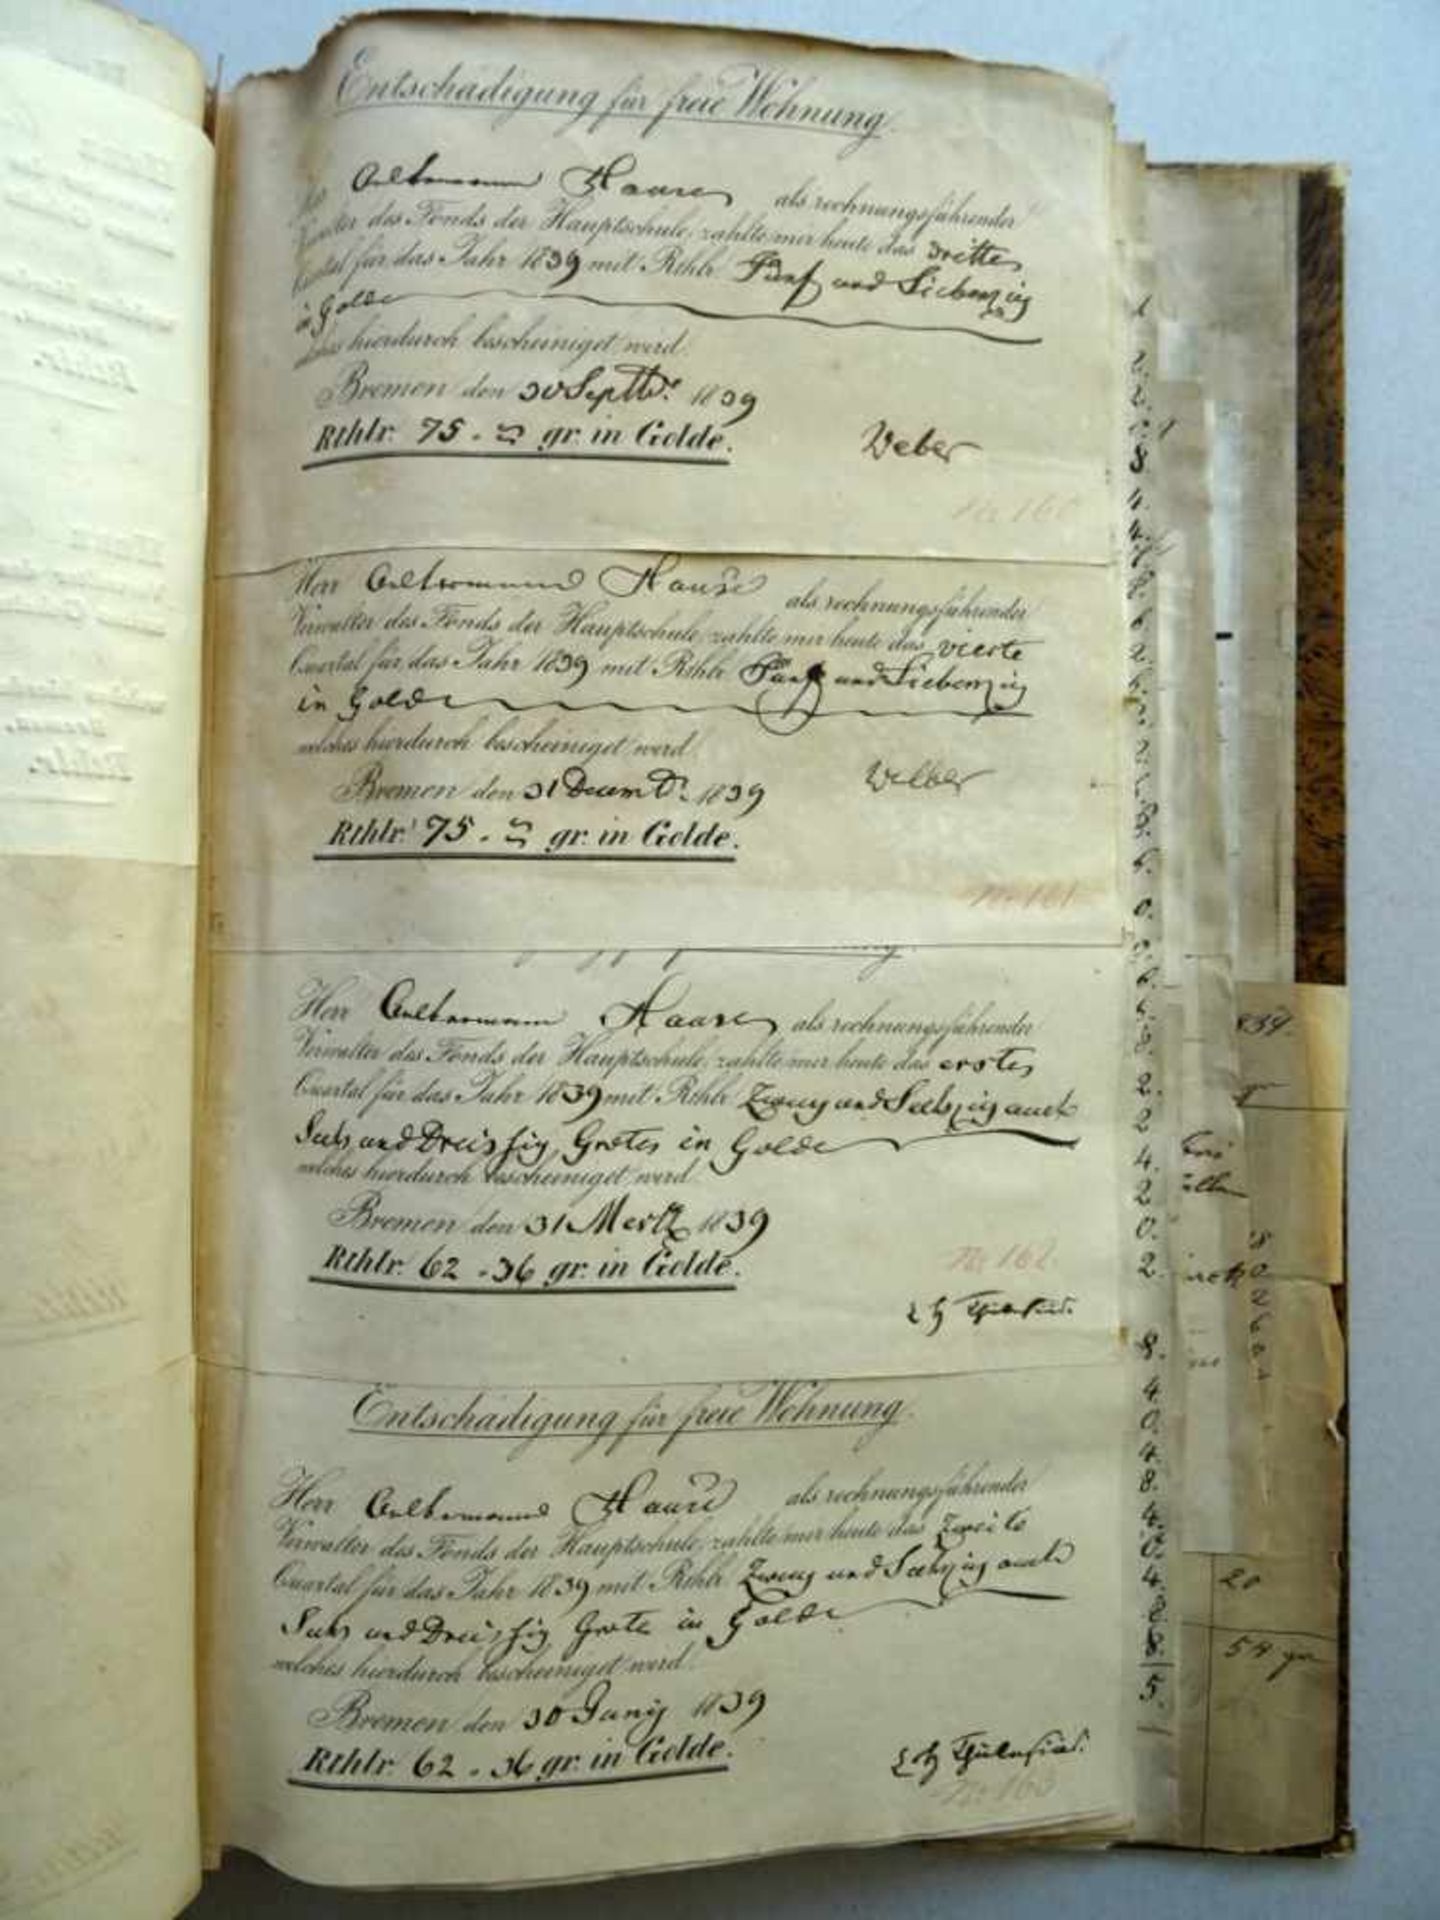 Entschädigung für freie Wohnung
Aeltermann Haase als rechnungsführender
Verwalter des Fonds der Hauptschule, zahlte mir heute das dritte
Quartal für das Jahr 1839 mit Rthlr. Fünf und Siebenzig
in Golde
welches hierdurch bescheiniget wird.
Bremen den 30 Septbr. 1839
Rthlr. 75 - gr. in Golde.
Weber
No 160
Herr Aeltermann Haase als rechnungsführender
Verwalter des Fonds der Hauptschule, zahlte mir heute das vierte
Quartal für das Jahr 1839 mit Rthlr. Fünf und Siebenzig
in Golde
welches hierdurch bescheiniget wird.
Bremen den 31 Decembr. 1839
Weber
Rthlr. 75 - gr. in Golde.
No 161
Herr Aeltermann Haase als rechnungsführender
Verwalter des Fonds der Hauptschule, zahlte mir heute das erste
Quartal für das Jahr 1839 mit Rthlr. Zwey und Sechzig auch
Sechs und Dreissig Grote in Golde
welches hierdurch bescheiniget wird.
Bremen den 31 Mertz 1839
Rthlr. 62 - 36 gr. in Golde.
No 162.
Entschädigung für freie Wohnung.
Herr Aeltermann Haase als rechnungsführender
Verwalter des Fonds der Hauptschule, zahlte mir heute das Zweite
Quartal für das Jahr 1839 mit Rthlr. Zwey und Sechzig auch
Sechs und Dreissig Grote in Golde
welches hierdurch bescheiniget wird.
Bremen den 30 Juny 1839
Rthlr. 62 - 36 gr. in Golde.
No 163
839.
20
54 gr